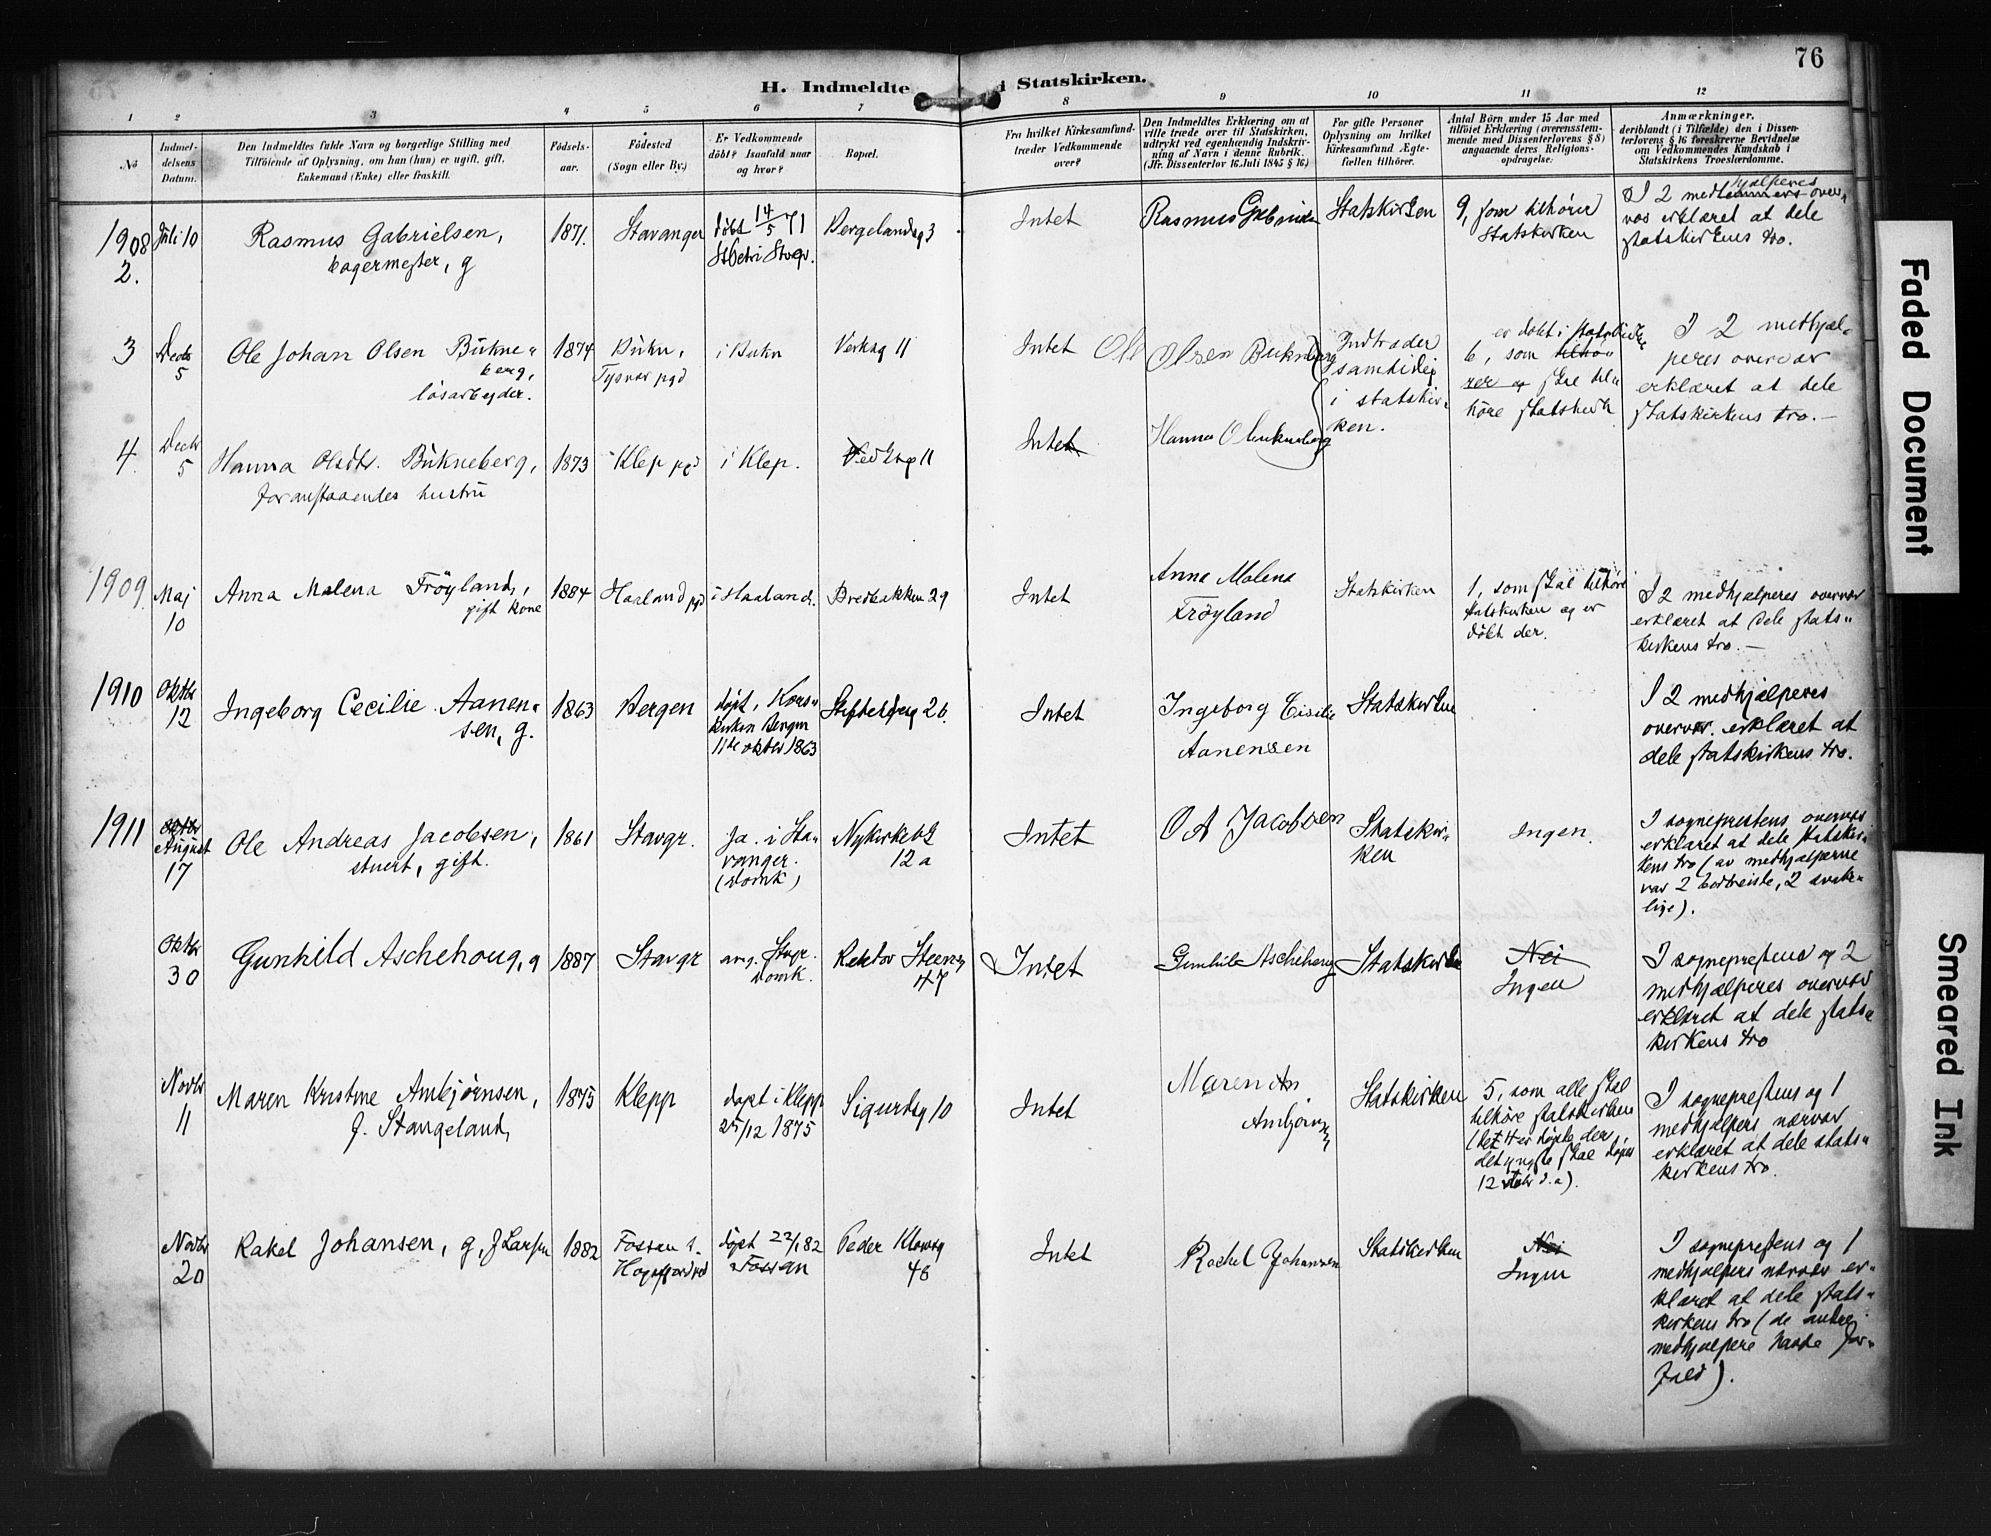 76
H. Indmeldte i Statskirken.
1 2 3 4 5 6 7 8 9 10 11 12
No
Indmel-
delsens
Datum.
Den Indmeldtes fulde Navn og borgerlige Stilling med
Tilføiende af Oplysning, om han (hun) er ugift, gift,
Enkemand (Enke) eller fraskilt.
Fødsels-
aar.
Fødested
(Sogn eller By.)
Er Vedkommende
døbt? Isaafald naar
og hvor?
Bopæl.
Fra hvilket Kirkesamfund-
træder Vedkommende
over?
Den Indmeldtes Erklæring om at
ville træde over til Statskirken,
udtrykt ved egenhændig Indskriv-
ning af Navn i denne Rubrik.
(Jfr. Dissenterlov 16 Juli 1845 § 16)
For gifte Personer
Oplysning om hvilket
Kirkesamfund Ægte-
fællen tilhører.
Antal Børn under 15 Aar med
tilføiet Erklæring (overensstem-
mende med Dissenterlovens § 8)
angaaende deres Religions-
opdragelse.
Anmærkninger,
deriblandt (i Tilfælde) den i Dissen-
terlovens § 16 foreskrevne Bevidnelse
om Vedkommendes Kundskab i
Statskirkens Troeslærdomme.
1908
2.
Juli 10
Rasmus Gabrielsen,
bagermester, g
1871.
Stavanger
døbt 14/5 71
St Petri Stvgr.
Bergelandsg 3
Intet
Rasmus Gabrielsen
Statskirken
9, som tilhører
Statskirken
I 2 medhjælperes over-
vær erklæret at dele
statskirkens tro.
3
Decbr
5
Ole Johan Olsen Bukne-
berg,
løsarbeyder.
1874
Bukn,
Tysvær pgd
i Bukn
Verksg 11
Intet
Ole Olsen Bukneberg
Indtræder
samtidig
i statskir-
ken.
er døbt i statskirke
6, som tilhø
rer og skal til-
høre statskirk
I 2 medhjæl-
peres overvær
erklæret at dele
statskirkens tro.-
4.
Decbr
5
Hanna Olsdtr. Bukneberg,
foranstaaendes hustru
1873
Klep pgd
i Klep.
Verksg 11
Intet
Hanna O Bukneberg
1909.
Maj
10
Anna Malena Fröyland,
gift kone
1884
Haaland pgd
i Haaland.
Bredbakken 29
Intet
Anna Malena
Fröyland
Statskirken
1, som skal tilhøre
statskirken og er
døbt der.
I 2 medhjælperes overvær
erklæret at dele stats-
kirkens tro.-
1910
Oktbr
12
Ingeborg Cecilie Aanen-
sen, g.
1863
Bergen
døpt, Kors-
kirken Bergen
11te oktbr 1863
26.
Intet
Ingeborg Cisilie
Aanensen
Statskirken
I 2 medhjælperes
overvær. erklæret at
dele statskirkens tro.
1911
August
17
Ole Andreas Jacobsen,
stuert, gift.
1861
Stavgr.
Ja. i Sta-
vanger.
(Domk)
Nykirkebk
12 a
Intet
O A Jacobsen
Statskir-
ken
Ingen.
I sogneprestens overvær
erklæret at dele statskir-
kens tro (av medhjælperne
var 2 bortreiste, 2 svake-
lige).
Oktbr
30
Gunhild Aschehoug, g
1887
Stavgr
ang. Stvgr.
Domk.
Rektor Steensg
47
Intet
Gunhild Aschehoug
Statskirken
Nei
Ingen
I sogneprestens og 2
medhjælperes overvær
erklæret at dele stats-
kirkens tro
Novbr
11
Maren Kristine Ambjørnsen,
f. Stangeland,
1875
Klepp
døpt i Klepp
25/12 1875
Sigurdsg 10
Intet
Maren An
Ambjørnsen
Statskirken
5, som alle skal
tilhøre statskirken
(de 4 er døpte der,
det yngste skal døpes
12 d. a).
I sogneprestens og 1
medhjælpers nærvær
erklæret at dele stats-
kirkens tro.
Novbr
20
Rakel Johansen, g, f Larsen
1882
Fossan i.
Høgsfjord pgd
døpt 22/1 82
Fossan
Peder Klowsg
46
Intet
Rachel Johansen
Statskirken
Nei
Ingen
I sogneprestens og 1
medhjælpers nærvær er-
klæret at dele stats-
kirkens tro (de andre
medhjælpere havde for-
fald).
Faded Document
Smeared Ink